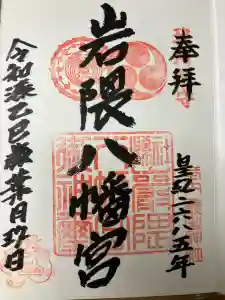 奉拝
皇紀二六八五年
岩隈八幡宮
令和漆乙巳歳葉月玖日